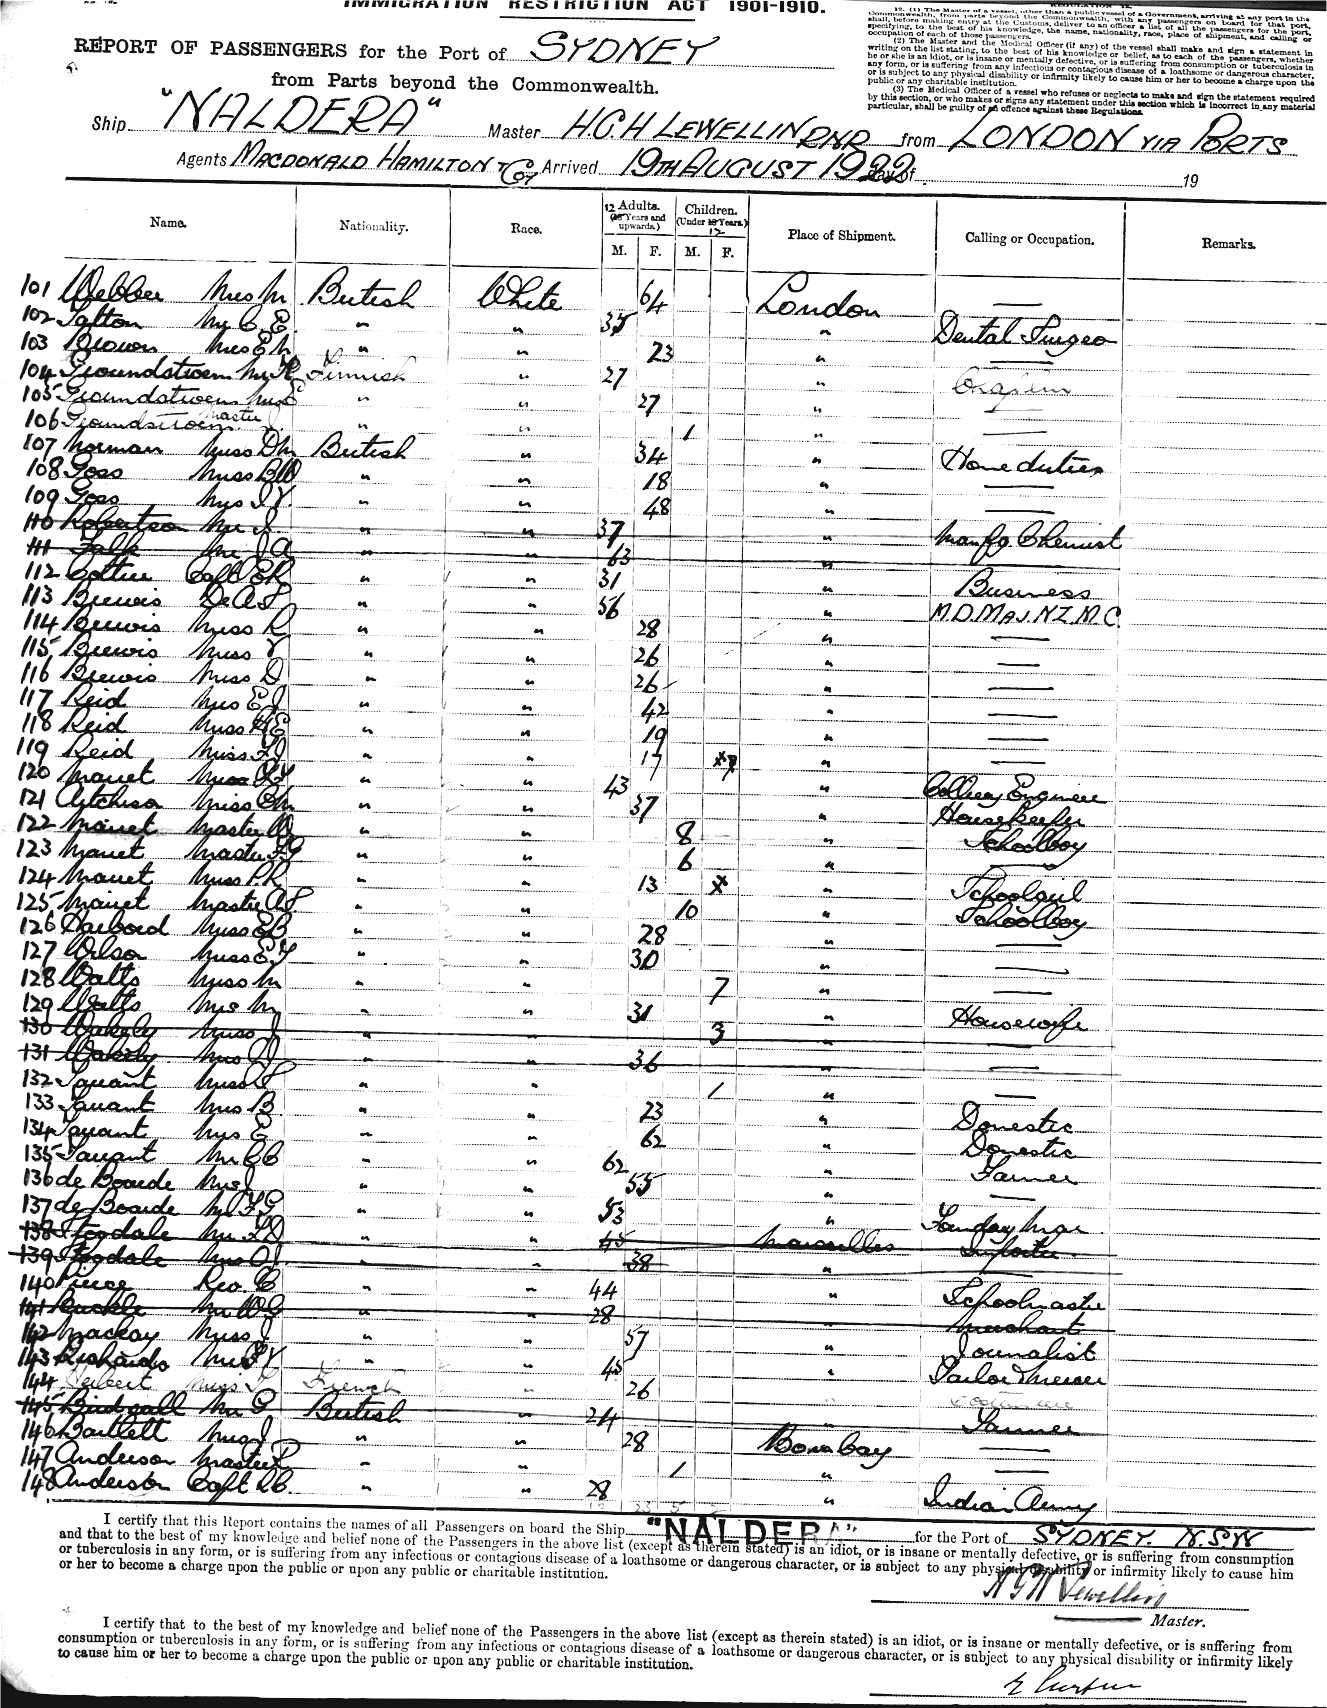 IMMIGRATION RESTRICTION ACT 1901-1910.
REPORT OF PASSENGERS for the Port of SYDNEY
from Parts beyond the Commonwealth.
12. (1) The Master of a vessel, other than a public vessel of a Government, arriving at any port in the
Commonwealth, from parts beyond the Commonwealth, with any passengers on board for that port,
shall, before making entry at the Customs, deliver to an officer a list of all the passengers for the port,
specifying, to the best of his knowledge, the name, nationality, race, place of shipment, and calling or
occupation of each of those passengers.
(2) The Master and the Medical Officer (if any) of the vessel shall make and sign a statement in
writing on the list stating, to the best of his knowledge or belief, as to each of the passengers, whether
he or she is an idiot, or is insane or mentally defective, or is suffering from consumption or tuberculosis in
any form, or is suffering from any infectious or contagious disease of a loathsome or dangerous character,
or is subject to any physical disability or infirmity likely to cause him or her to become a charge upon the
public or any charitable institution.
(3) The Medical Officer of a vessel who refuses or neglects to make and sign the statement required
by this section, or who makes or signs any statement under this section which is incorrect in any material
particular, shall be guilty of an offence against these Regulations.
Ship "NALDERA" Master H.C.H LEWELLIN RNR from LONDON VIA PORTS
Agents MACDONALD HAMILTON & Coy Arrived 19TH AUGUST 1922 day of 19
Name. Nationality. Race. 12 Adults. (Years and upwards.) Children. (Under 12 Years.) Place of Shipment. Calling or Occupation. Remarks.
M. F. M. F.
101 Webber Mrs M British White 64 London —
102 Tatton Mr C.E. " " 35 " Dental Surgeo
103 Brown Mrs E M " " 23 " —
104 Groundstroem Mr Finnish " 27 "
105 Groundstroem Mrs " " 27 " —
106 Groundstroem Master " " 1 " —
107 Norman Miss D M British " 34 " Home duties
108 Goss Miss B W " " 18 " —
109 Goss Mrs I V. " " 48 " —
110 Robertson Mr J. " " 37 " Manfg. Chemist
111 Falk Mr J A " " 63 "
112 Cottier Capt E R " " 31 " Business
113 Brewis Dr A S " " 56 " M.D. MAJ. N.Z.M.C.
114 Brewis Miss R " " 28 " —
115 Brewis Miss V " " 26 " —
116 Brewis Miss D " " 26 " —
117 Reid Mrs E J " " 42 " —
118 Reid Miss H E " " 19 " —
119 Reid Miss " " 17 " —
120 Manet " " 43 " Colliery Engineer
121 Aitchison Miss C M. " " 37 " Housekeeper
122 Manet Master W " " 8 " Schoolboy
123 Manet Master " " 6 " —
124 Manet Miss P.R. " " 13 x " Schoolgirl
125 Manet Master A.S. " " 10 " Schoolboy
126 Harbord Miss E B " " 28 " —
127 Wilson Miss E " " 30 " —
128 Watts Miss M " " 7 " —
129 Watts Mrs M " " 31 " Housewife
130 Wakely Miss J " " 3 " —
131 Wakely Mrs D " " 36 " —
132 Tarrant Miss " " 1 " —
133 Tarrant Mrs B. " " 23 " Domestic
134 Tarrant Mrs E " " 62 " Domestic
135 Tarrant Mr C C " " 62 " Farmer
136 de Boarde Mrs J " " 55 " —
137 de Boarde Mr F G " " 53 "
138 Stogdale Mr " " 45 Marseilles Importer
139 Stogdale Mrs " " 38 " —
140 Pierce Rev. C " " 44 " Schoolmaster
141 Ruckle Mr W G " " 28 " Merchant
142 Mackay Miss J " " 57 " Journalist
143 Richards " " 45 " Tailor Mercer
144 Miss French " 26 "
145 Birdsall Mr G British " 24 " Farmer
146 Bartlett Mrs J " " 28 Bombay —
147 Anderson Master P " " 1 " —
148 Anderson Capt " " 28 " Indian Army
I certify that this Report contains the names of all Passengers on board the Ship "NALDERA" for the Port of SYDNEY. N.S.W
and that to the best of my knowledge and belief none of the Passengers in the above list (except as therein stated) is an idiot, or is insane or mentally defective, or is suffering from consumption
or tuberculosis in any form, or is suffering from any infectious or contagious disease of a loathsome or dangerous character, or is subject to any physical disability or infirmity likely to cause him
or her to become a charge upon the public or upon any public or charitable institution.
Lewellin
Master.
I certify that to the best of my knowledge and belief none of the Passengers in the above list (except as therein stated) is an idiot, or is insane or mentally defective, or is suffering from
consumption or tuberculosis in any form, or is suffering from any infectious or contagious disease of a loathsome or dangerous character, or is subject to any physical disability or infirmity likely
to cause him or her to become a charge upon the public or upon any public or charitable institution.